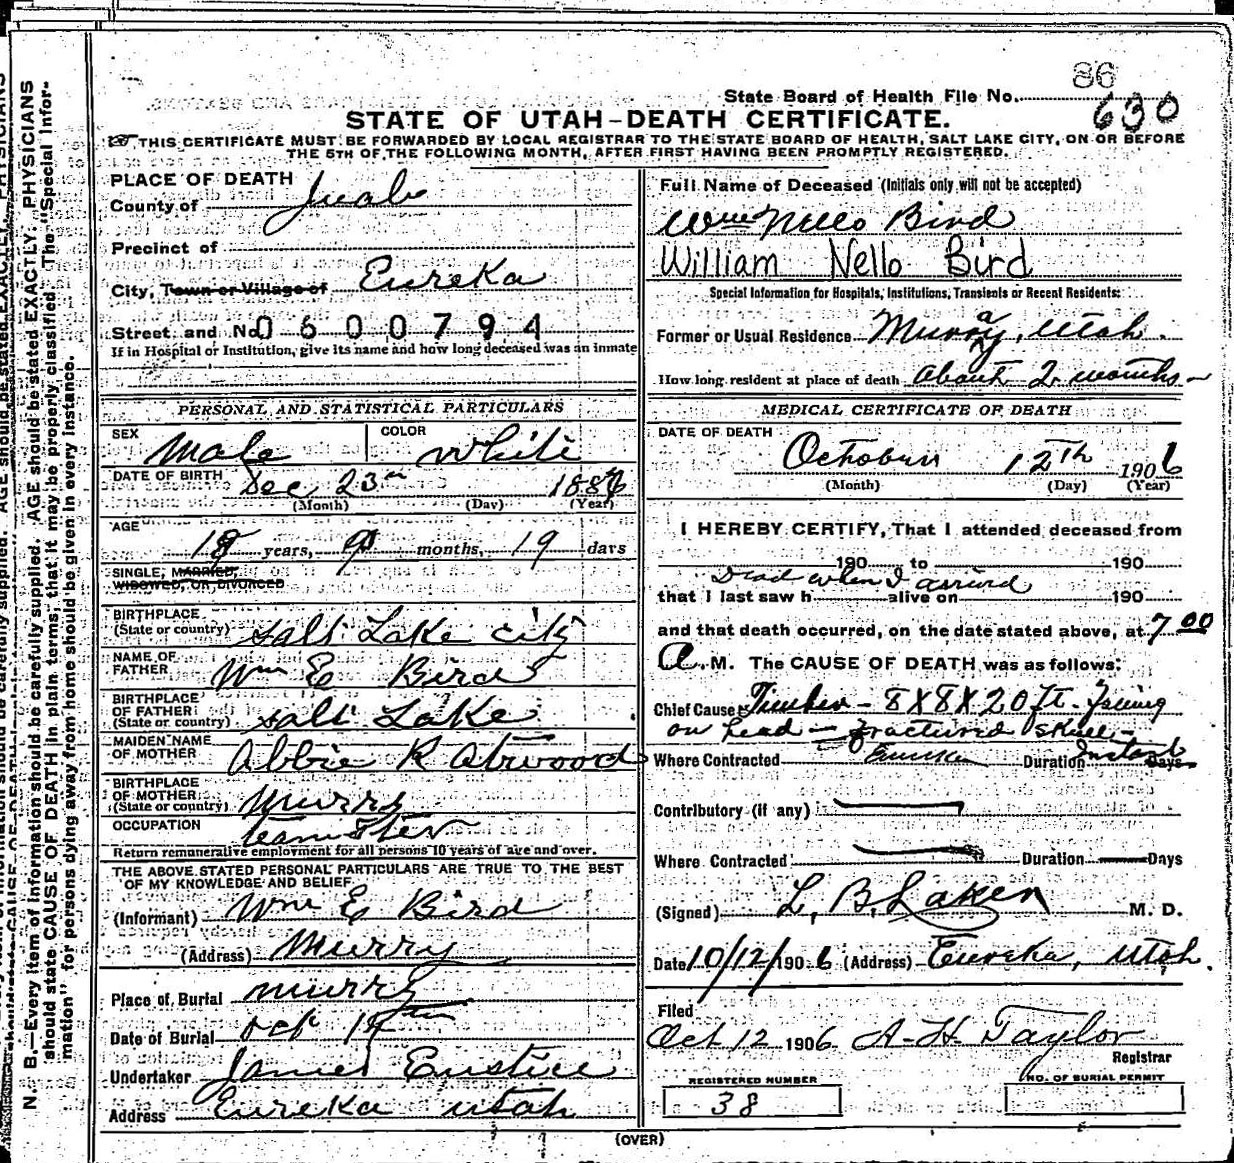 86
State Board of Health File No. 630
STATE OF UTAH-DEATH CERTIFICATE.
THIS CERTIFICATE MUST BE FORWARDED BY LOCAL REGISTRAR TO THE STATE BOARD OF HEALTH, SALT LAKE CITY, ON OR BEFORE
THE 5TH OF THE FOLLOWING MONTH, AFTER FIRST HAVING BEEN PROMPTLY REGISTERED.
PLACE OF DEATH
County of Juab
Precinct of
City, Town or Village of Eureka
Street and No. 0600794
If in Hospital or Institution, give its name and how long deceased was an inmate
PERSONAL AND STATISTICAL PARTICULARS
SEX Male COLOR White
DATE OF BIRTH Dec 23rd 188
(Month) (Day) (Year)
AGE 18 years, 9 months, 19 days
SINGLE, MARRIED,
WIDOWED, OR DIVORCED
BIRTHPLACE
(State or country) Salt Lake City
NAME OF
FATHER Wm E Bird
BIRTHPLACE
OF FATHER
(State or country) Salt Lake
MAIDEN NAME
OF MOTHER Abbie R Atwood
BIRTHPLACE
OF MOTHER
(State or country) Murry
OCCUPATION teamster
Return remunerative employment for all persons 10 years of age and over.
THE ABOVE STATED PERSONAL PARTICULARS ARE TRUE TO THE BEST
OF MY KNOWLEDGE AND BELIEF
(Informant) Wm E Bird
(Address) Murry
Place of Burial Murry
Date of Burial Oct 14th
Undertaker James Eustice
Address Eureka Utah
Full Name of Deceased (Initials only will not be accepted)
Wm Nello Bird
William Nello Bird
Special Information for Hospitals, Institutions, Transients or Recent Residents:
Former or Usual Residence Murray, Utah.
How long resident at place of death about 2 months
MEDICAL CERTIFICATE OF DEATH
DATE OF DEATH
October 12th 1906
(Month) (Day) (Year)
I HEREBY CERTIFY, That I attended deceased from
190 to 190
Dead when I arrived
that I last saw h alive on 190
and that death occurred, on the date stated above, at 7 00
A. M. The CAUSE OF DEATH was as follows:
Chief Cause Timber - 8X8X20 ft.
on head - fractured skull -
Where Contracted Eureka Duration Instant Days
Contributory (if any)
Where Contracted Duration Days
(Signed) L. B. Laker M. D.
Date 10/12/1906 (Address) Eureka, Utah.
Filed
Oct 12 1906 A. H. Taylor
Registrar
REGISTERED NUMBER NO. OF BURIAL PERMIT
38
(OVER)
N. B.—Every item of information should be carefully supplied. AGE should be stated EXACTLY. PHYSICIANS
should state CAUSE OF DEATH in plain terms, that it may be properly classified. The "Special Infor-
mation" for persons dying away from home should be given in every instance.